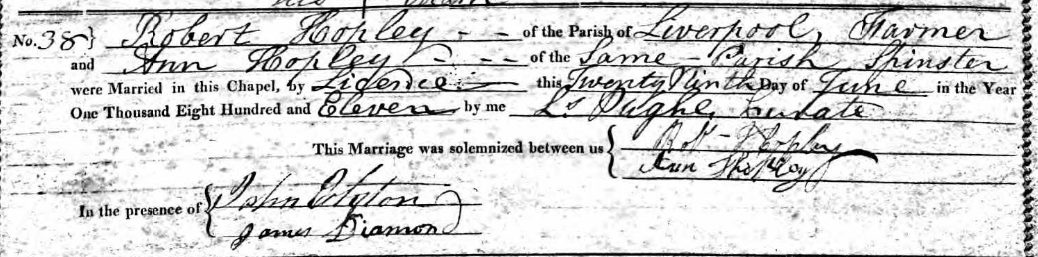 No. 38} Robert Hopley - - of the Parish of Liverpool, Farmer
and Ann Hopley - - - of the Same - Parish Spinster
were Married in this Chapel, by Licence this Twenty Ninth Day of June in the Year
One Thousand Eight Hundred and Eleven by me Ls Pughe, Curate
This Marriage was solemnized between us { Robt Hopley
Ann Hopley
In the presence of { John
James Diamond